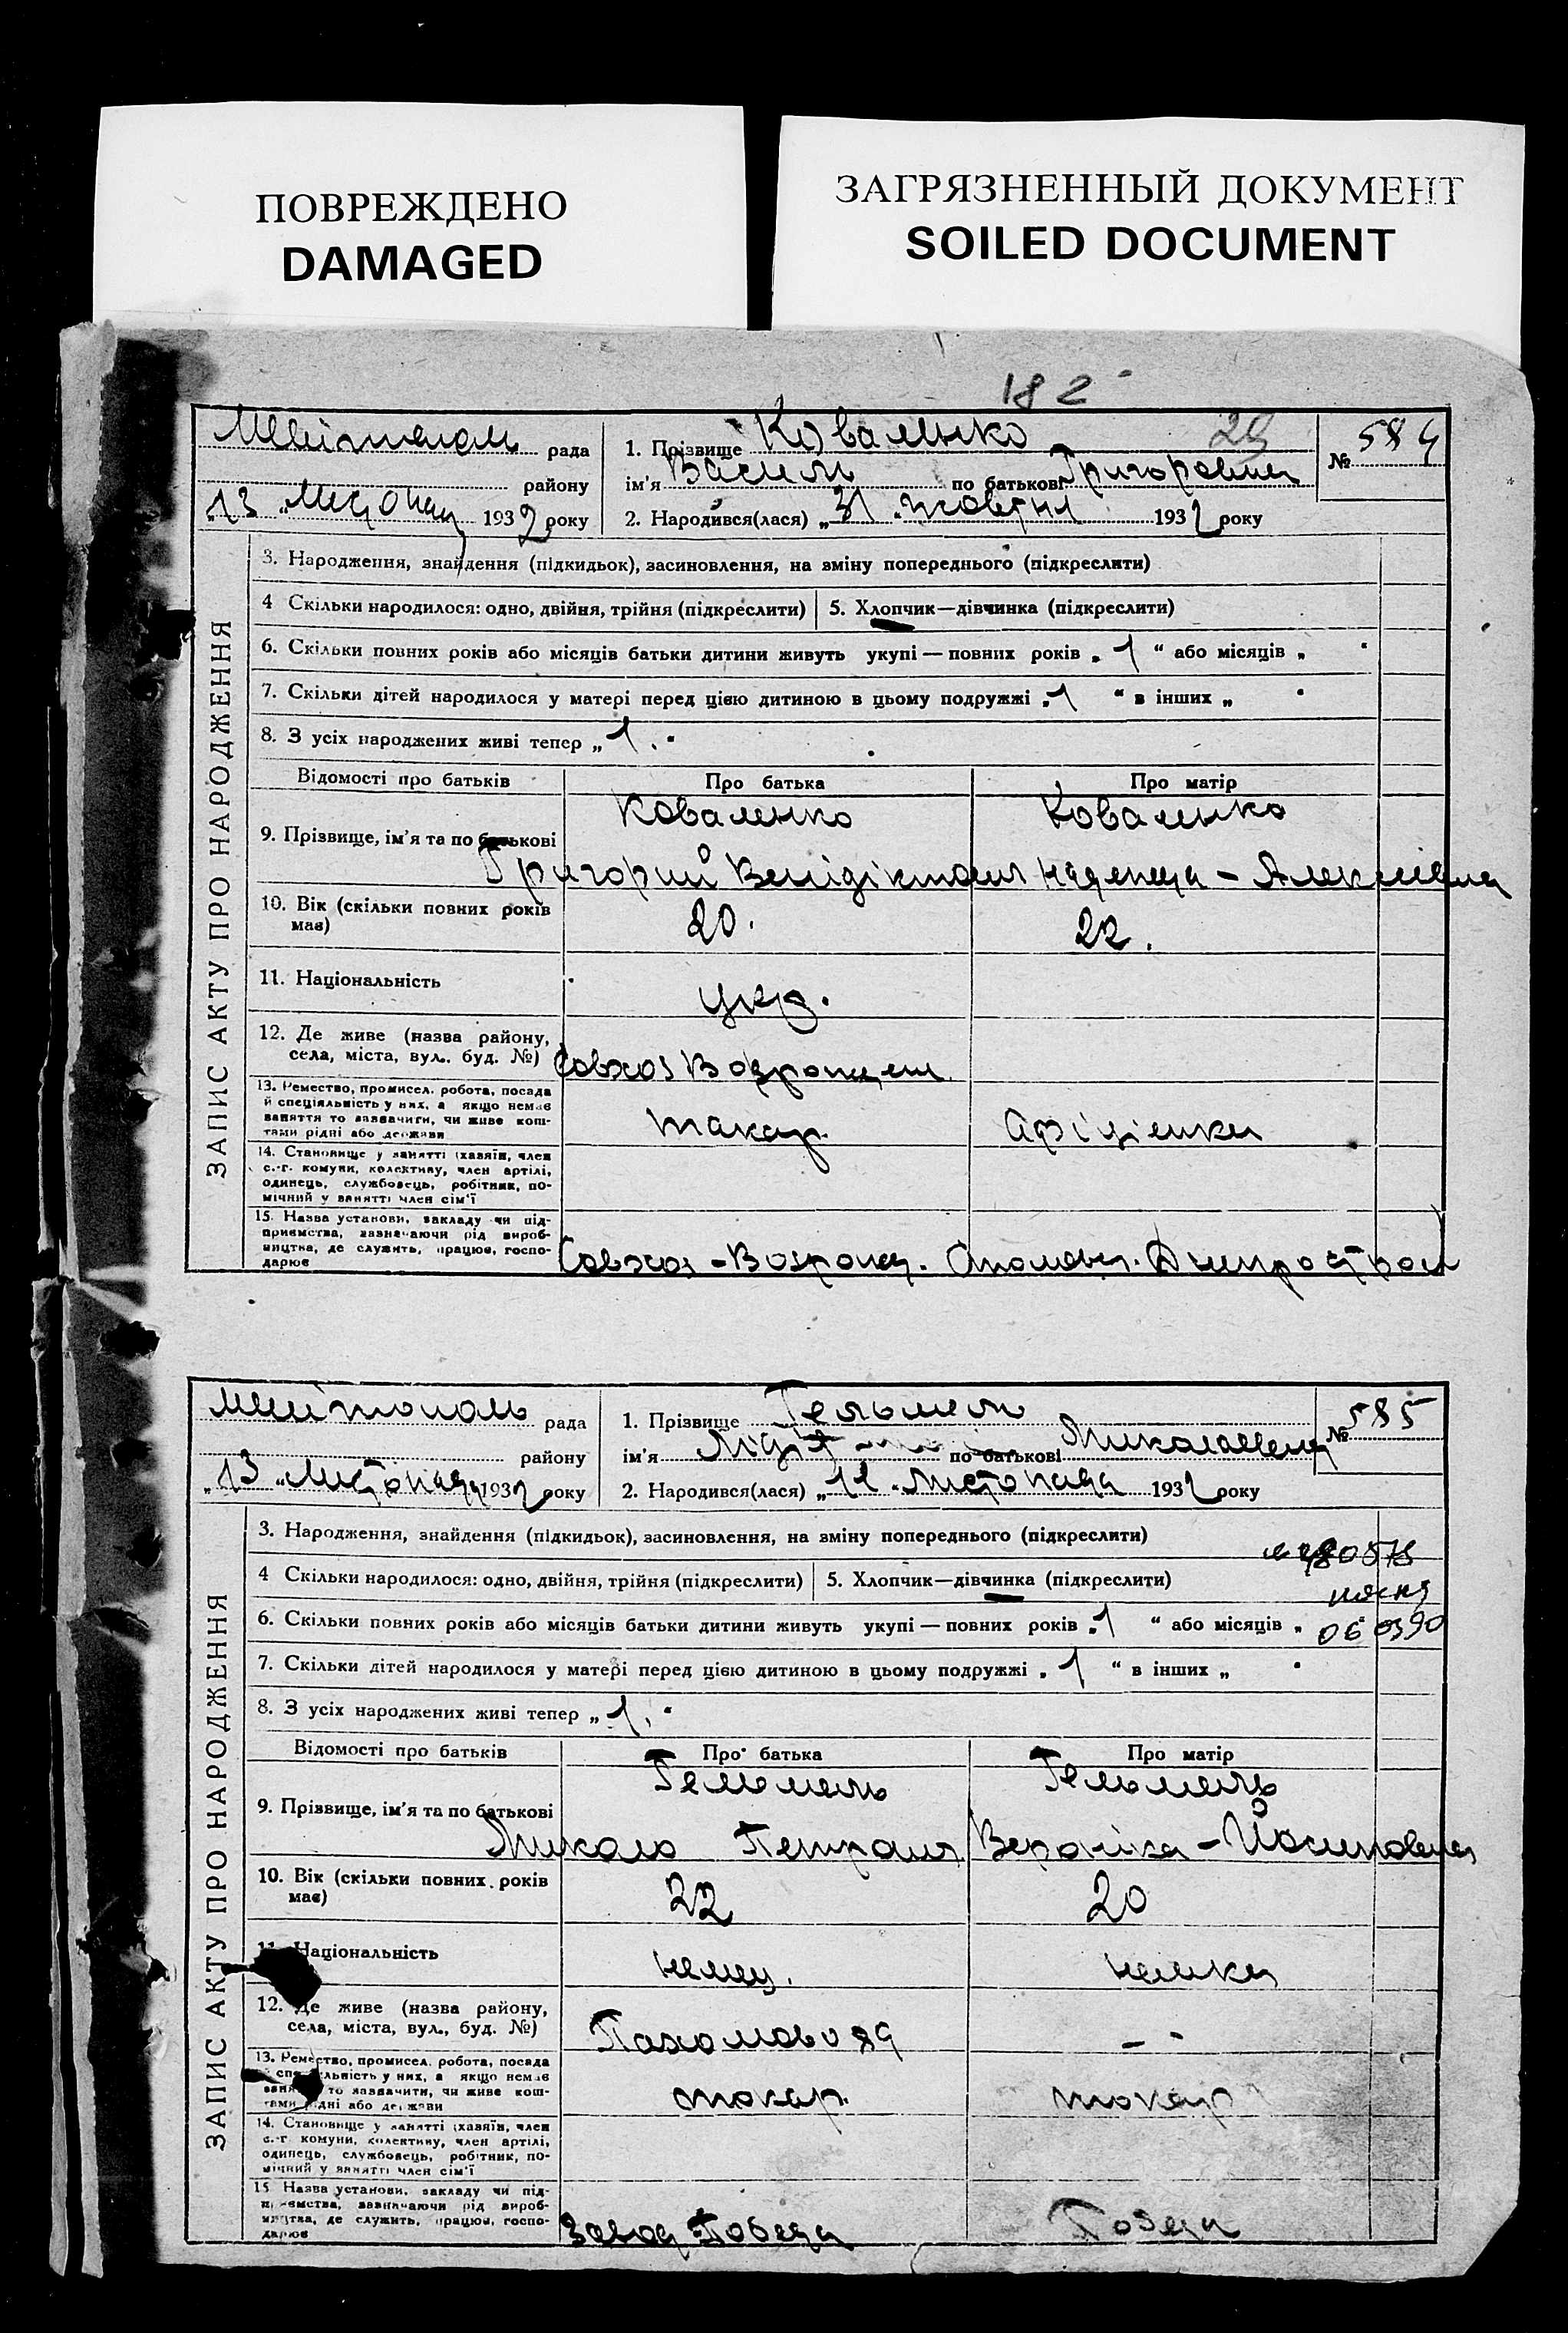 ПОВРЕЖДЕНО
DAMAGED
ЗАГРЯЗНЕННЫЙ ДОКУМЕНТ
SOILED DOCUMENT
182
29
ЗАПИС АКТУ ПРО НАРОДЖЕННЯ
Мелітополь рада
району
"13" Листопад 1932 року
1. Прізвище Коваленко
ім'я Василь по батькові Григорович
№ 584
2. Народився(лася) „31" жовтня 1932 року
3. Народження, знайдення (підкидьок), засиновлення, на зміну попереднього (підкреслити)
4 Скільки народилося: одно, двійня, трійня (підкреслити) 5. Хлопчик—дівчинка (підкреслити)
6. Скільки повних років або місяців батьки дитини живуть укупі — повних років „1" або місяців „
7. Скільки дітей народилося у матері перед цією дитиною в цьому подружжі „1" в інших „
8. З усіх народжених живі тепер „1."
Відомості про батьків Про батька Про матір
9. Прізвище, ім'я та по батькові Коваленко Коваленко
Григорий
10. Вік (скільки повних років має) 20. 22.
11. Національність укр.
12. Де живе (назва району, села, міста, вул., буд. №) Совхоз
13. Ремество, промисел, робота, посада
й спеціяльність у них, а якщо немає
заняття то зазначити, чи живе кош-
тами рідні або держави
14. Становище у занятті (хазяїн, член
с.-г. комуни, колективу, член артілі,
одинець, службовець, робітник, по-
мічний у занятті член сім'ї
15. Назва установи, закладу чи під-
приємства, зазначаючи рід вироб-
ництва, де служить, працює, госпо-
дарює Совхоз Днепрострой
ЗАПИС АКТУ ПРО НАРОДЖЕННЯ
Мелітополь рада
району
"13" Листопада 1932 року
1. Прізвище Гельмель
ім'я Лідія по батькові Миколаевна
№ 585
2. Народився(лася) „11" Листопада 1932 року
3. Народження, знайдення (підкидьок), засиновлення, на зміну попереднього (підкреслити)
4 Скільки народилося: одно, двійня, трійня (підкреслити) 5. Хлопчик—дівчинка (підкреслити)
6. Скільки повних років або місяців батьки дитини живуть укупі — повних років „1" або місяців „
06 0390
7. Скільки дітей народилося у матері перед цією дитиною в цьому подружжі „1" в інших „
8. З усіх народжених живі тепер „1."
Відомості про батьків Про батька Про матір
9. Прізвище, ім'я та по батькові Гельмель Гельмель
Микола Петрович Вероніка - Йосиповна
10. Вік (скільки повних років має) 22 20
11. Національність немец. немка
12. Де живе (назва району, села, міста, вул., буд. №) Пахомово 89 - -
13. Ремество, промисел, робота, посада
й спеціяльність у них, а якщо немає
заняття то зазначити, чи живе кош-
тами рідні або держави токар. токар
14. Становище у занятті (хазяїн, член
с.-г. комуни, колективу, член артілі,
одинець, службовець, робітник, по-
мічний у занятті член сім'ї
15 Назва установи, закладу чи під-
приємства, зазначаючи рід вироб-
ництва, де служить, працює, госпо-
дарює Завод Победа Победа